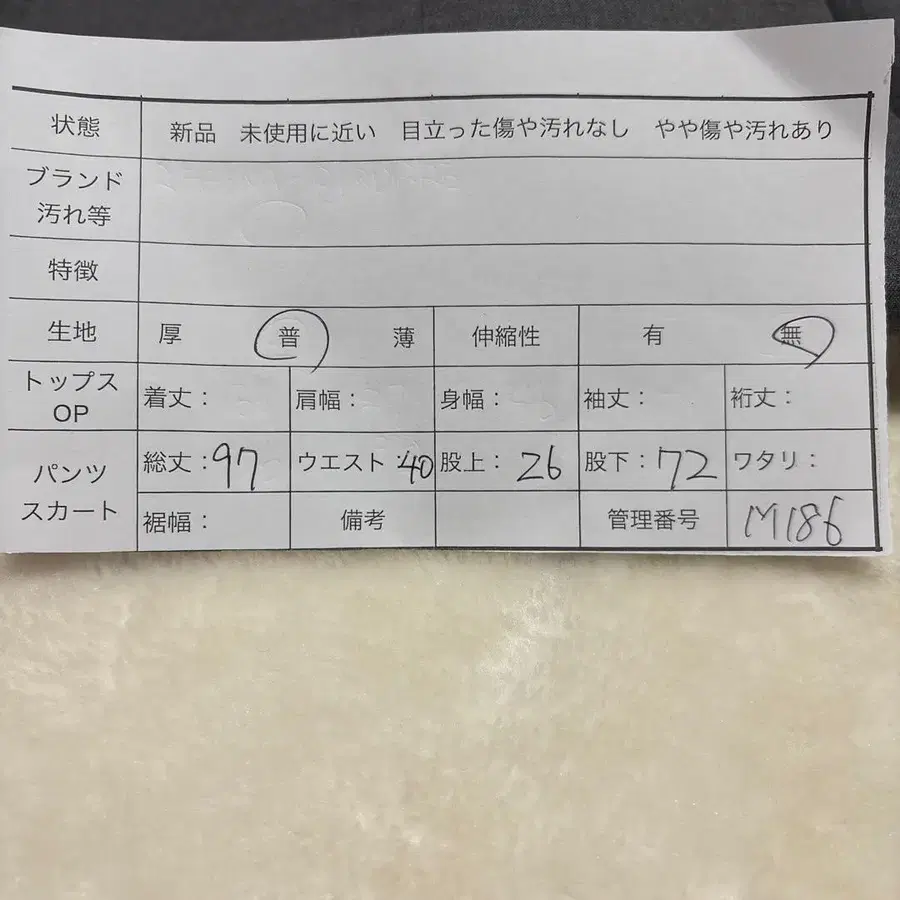 状態 新品 未使用に近い 目立った傷や汚れなし やや傷や汚れあり
ブランド
汚れ等
特徴
生地 厚 普 薄 伸縮性 有 無
トップス
OP 着丈： 肩幅： 身幅： 袖丈： 裄丈：
パンツ
スカート
総丈：97 ウエスト：40 股上：26 股下：72 ワタリ：
裾幅： 備考 管理番号 M186